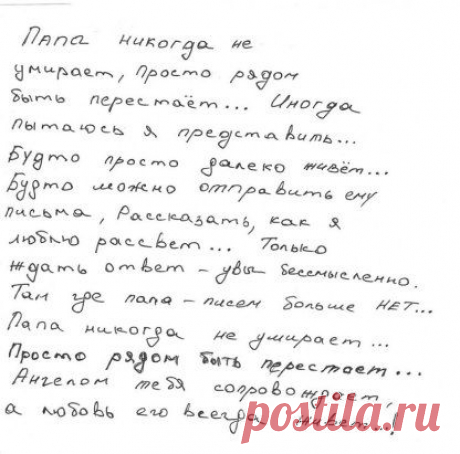 Папа никогда не
умирает, просто рядом
быть перестаёт... Иногда
пытаюсь я представить...
Будто просто далеко живёт...
Будто можно отправить ему
письма, Рассказать, как я
люблю рассвет... Только
ждать ответ - увы бессмысленно.
Там где папа - писем больше НЕТ...
Папа никогда не умирает...
Просто рядом быть перестает...
Ангелом тебя сопровождает,
а любовь его всегда живет..!
postila.ru